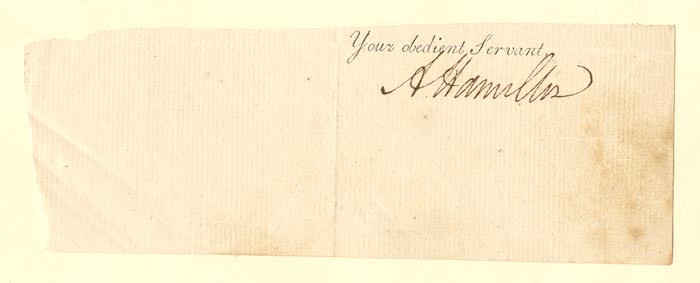 Your obedient Servant
A Hamilton